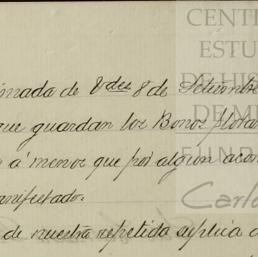 CENT
ESTU
DE HI
DE M
FUND
mada de Vdes 8 de Setiembre
que guardan los Bonos flota
a menos que por algun acon
anifestado.
de nuestra repetida suplica a
Carlo